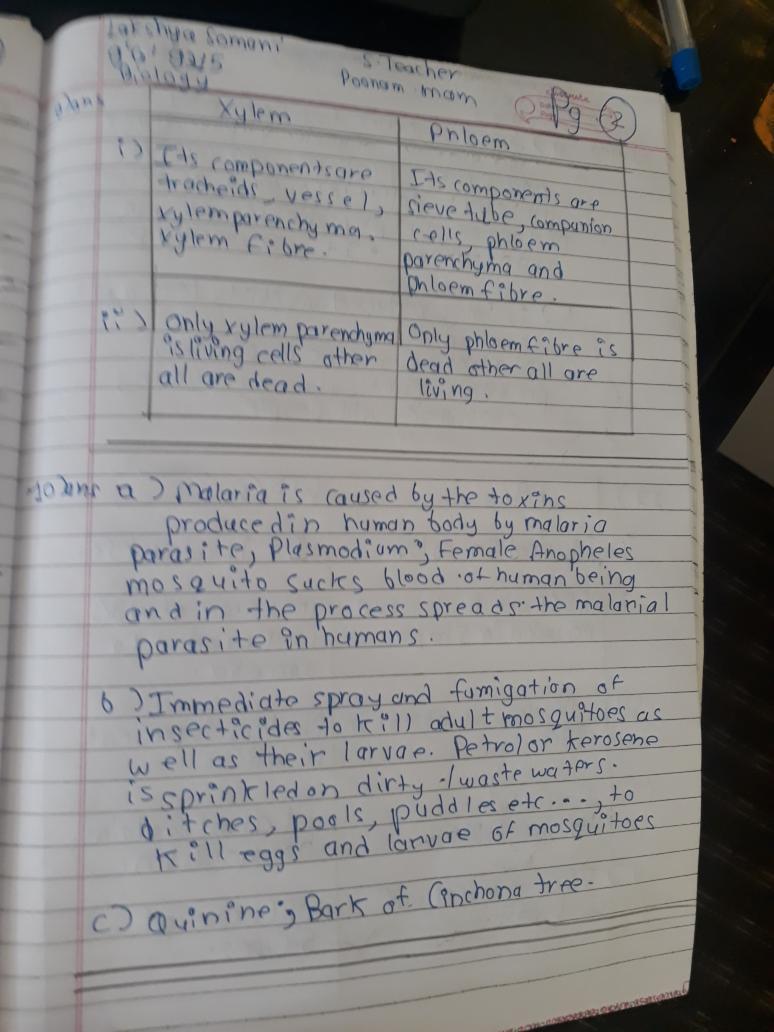 Lakshya Samani
S. Teacher
Biology
Poonam mam
Pg. 2
Xylem
Phloem
i) Its components are
tracheids, vessel,
xylem parenchyma.
xylem fibre.
Its components are
sieve tube, companion
cells, phloem
parenchyma and
phloem fibre.
ii) Only xylem parenchyma
is living cells other
all are dead.
Only phloem fibre is
dead other all are
living.
10 ans a) Malaria is caused by the toxins
produced in human body by malaria
parasite, Plasmodium; Female Anopheles
mosquito sucks blood of human being
and in the process spreads the malarial
parasite in humans.
b) Immediate spray and fumigation of
insecticides to kill adult mosquitoes as
well as their larvae. Petrol or kerosene
is sprinkled on dirty /waste waters.
ditches, pools, puddles etc..., to
kill eggs and larvae of mosquitoes
c) Quinine; Bark of Cinchona tree.